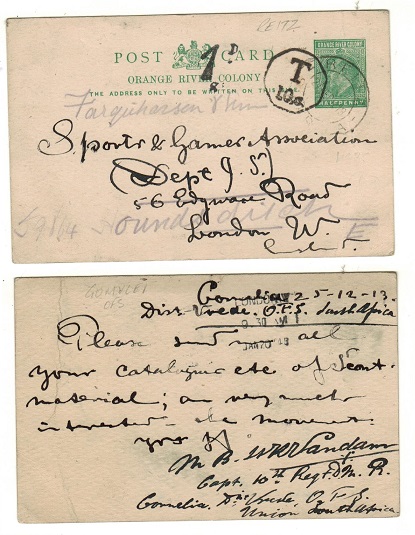 REITZ
POST CARD
1D
ORANGE RIVER COLONY
THE ADDRESS ONLY TO BE WRITTEN ON THIS SIDE
T
10c
HALFPENNY
Farquharson
Sports & Games Association
(Dept J.S.)
56 Edgware Road
Houndsditch E
London W.
CORNELIA
OFS
Cornelia 25-12-13.
Dist Vrede. O.F.S. South Africa
LONDON W
9.30 AM
JAN 20
Please send me all
your catalogues etc of Scout
material; am very much
interested in the movement.
yrs
M. B. van Landam
Capt. 10th Regt. M. R.
Cornelia, Dist Vrede, O.F.S.
Union South Africa.